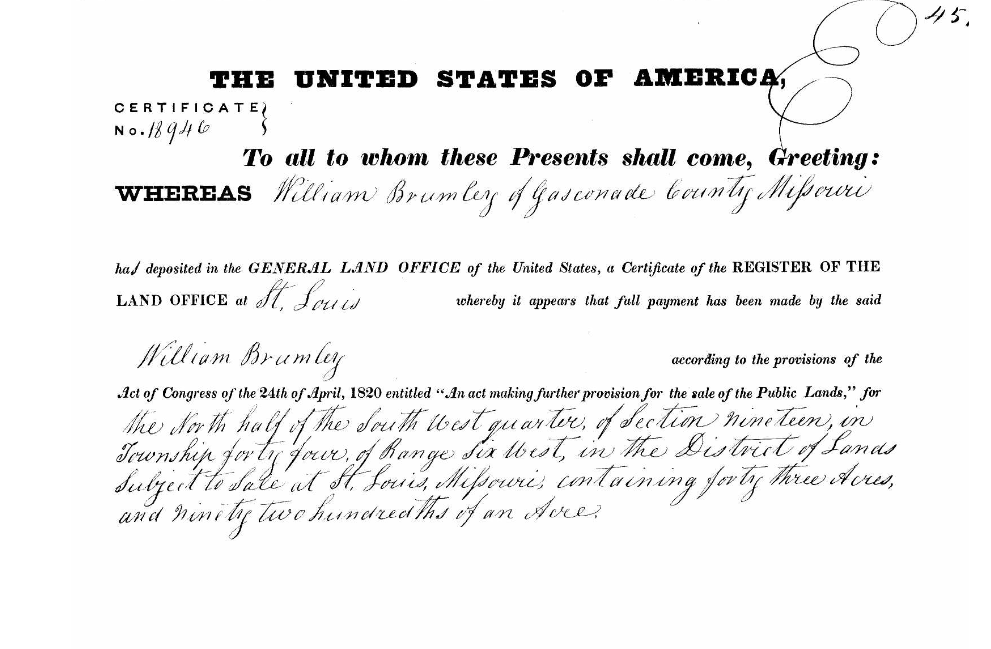 45.
THE UNITED STATES OF AMERICA,
CERTIFICATE
No. 18946
To all to whom these Presents shall come, Greeting:
WHEREAS William Brumley of Gasconade County Missouri
has deposited in the GENERAL LAND OFFICE of the United States, a Certificate of the REGISTER OF THE
LAND OFFICE at St. Louis whereby it appears that full payment has been made by the said
William Brumley according to the provisions of the
Act of Congress of the 24th of April, 1820 entitled “An act making further provision for the sale of the Public Lands,” for
the North half of the South West quarter, of Section nineteen, in
Township forty four, of Range Six West, in the District of Lands
Subject to Sale at St. Louis, Missouri, containing forty three Acres,
and ninety two hundredths of an Acre.